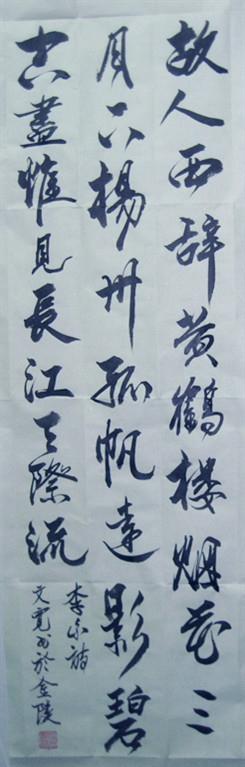 故人西辞黄鶴楼烟花三
月下楊州孤帆遠影碧
空盡惟見長江天際流
李白诗
文宽书於金陵